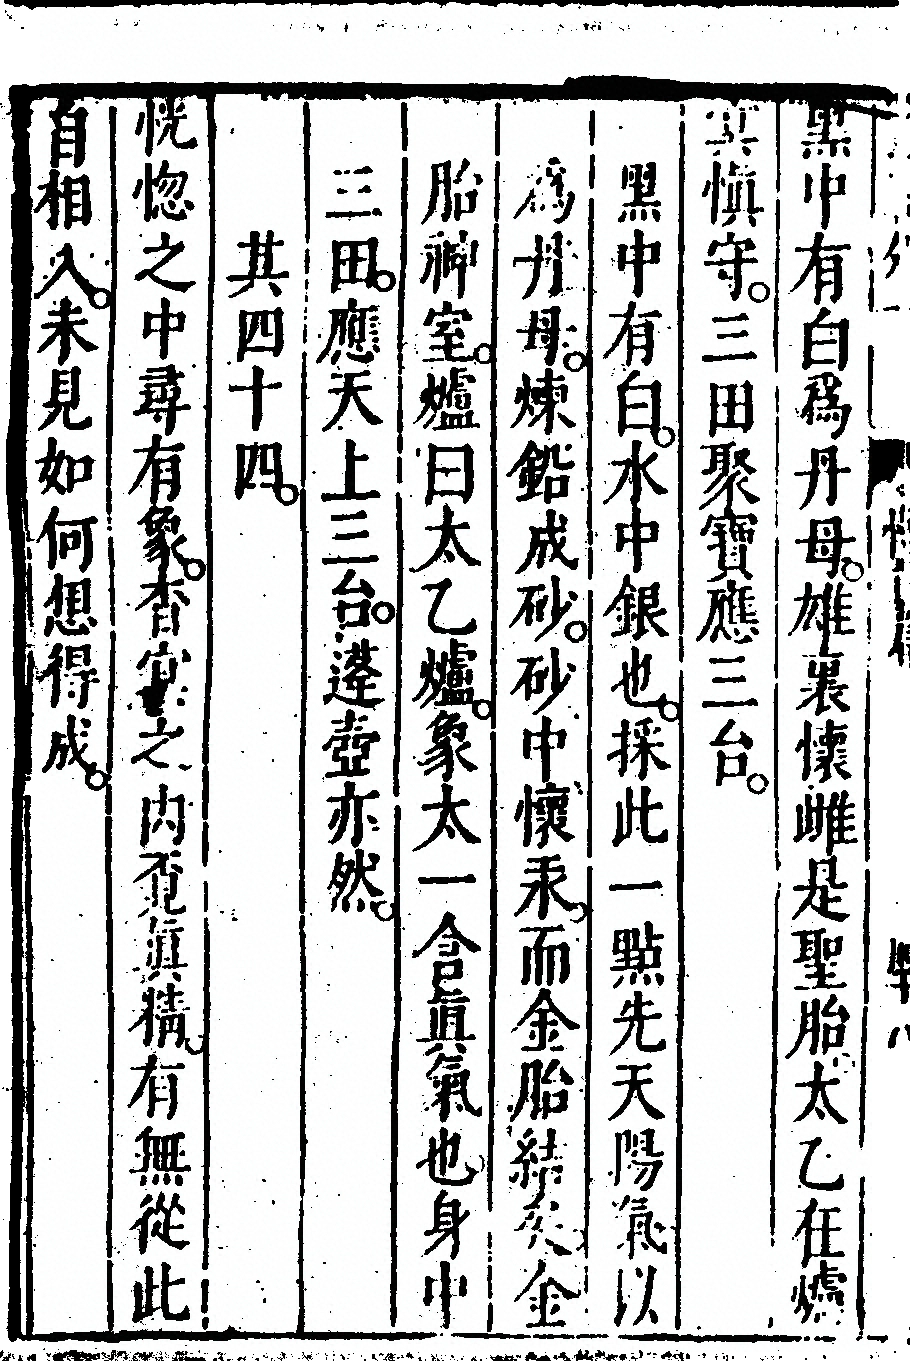 黑中有白爲丹母。雄裏懷雌是聖胎太乙在爐
其愼守。三田聚寶應三台。
黑中有白。水中銀也。採此一點先天陽氣以
爲丹母。煉鉛成砂。砂中懷汞。而金胎結矣。金
胎神室。爐曰太乙爐。象太一含眞氣也身中
三田。應天上三台。蓬壺亦然。
其四十四。
恍惚之中尋有象。杳冥之內覓眞精。有無從此
自相入。未見如何想得成。